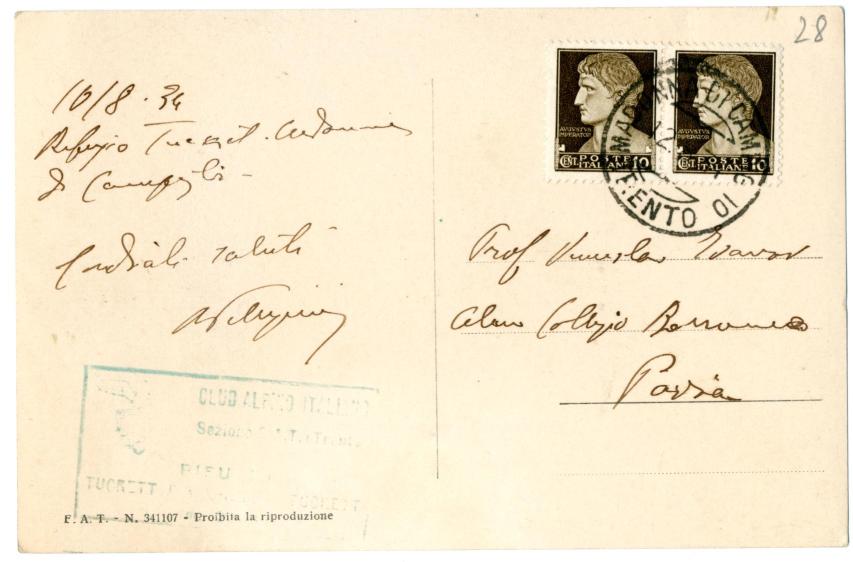 28
10/8 · 34
Rifugio Tuckett
di Campiglio
Cordiali saluti
AVGVSTVS
IMPERATOR
CENT. POSTE ITALIANE 10
AVGVSTVS
IMPERATOR
CENT. POSTE ITALIANE 10
MADONNA DI CAMPIGLIO
TRENTO
Prof
Collegio Borromeo
Pavia
CLUB ALPINO ITALIANO
Sezione S.A.T. Trento
RIFU
TUCKETT
F. A. T. - N. 341107 - Proibita la riproduzione